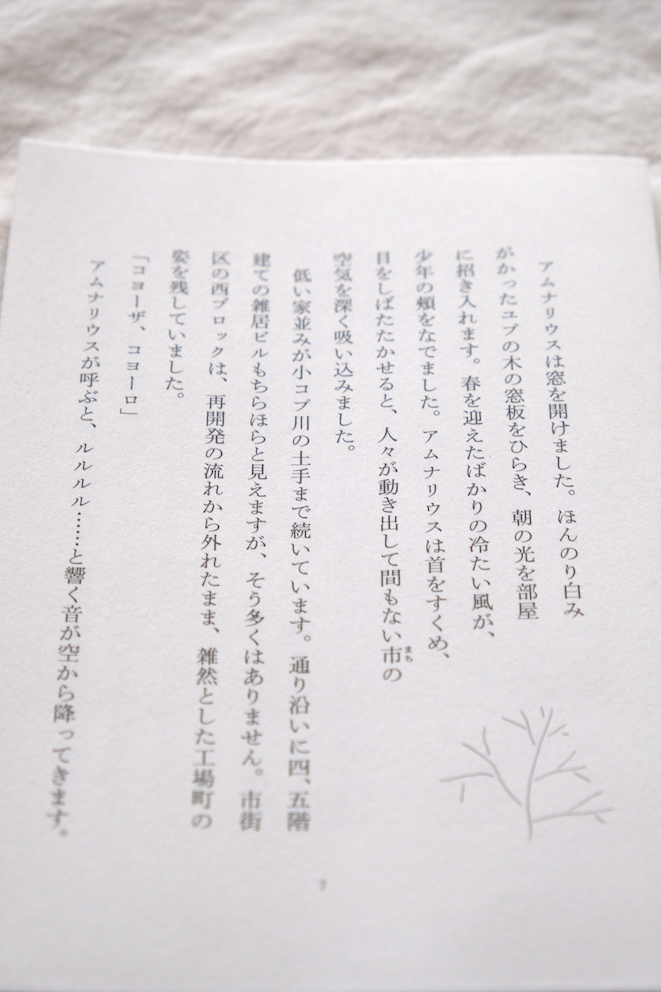 アムナリウスは窓を開けました。ほんのり白み
がかったユブの木の窓板をひらき、朝の光を部屋
に招き入れます。春を迎えたばかりの冷たい風が、
少年の頬をなでました。アムナリウスは首をすくめ、
目をしばたたかせると、人々が動き出して間もない市の
まち
空気を深く吸い込みました。
低い家並みが小コプ川の土手まで続いています。通り沿いに四、五階
建ての雑居ビルもちらほらと見えますが、そう多くはありません。市街
区の西ブロックは、再開発の流れから外れたまま、雑然とした工場町の
姿を残していました。
「コヨーザ、コヨーロ」
アムナリウスが呼ぶと、ルルルル……と響く音が空から降ってきます。
7